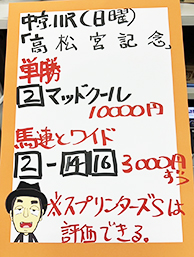 中京11R(日曜)
「高松宮記念」
単勝
2マッドクール
10000円
馬連とワイド
2-14 16 3000円
ずつ
※スプリンターズSは
評価できる。